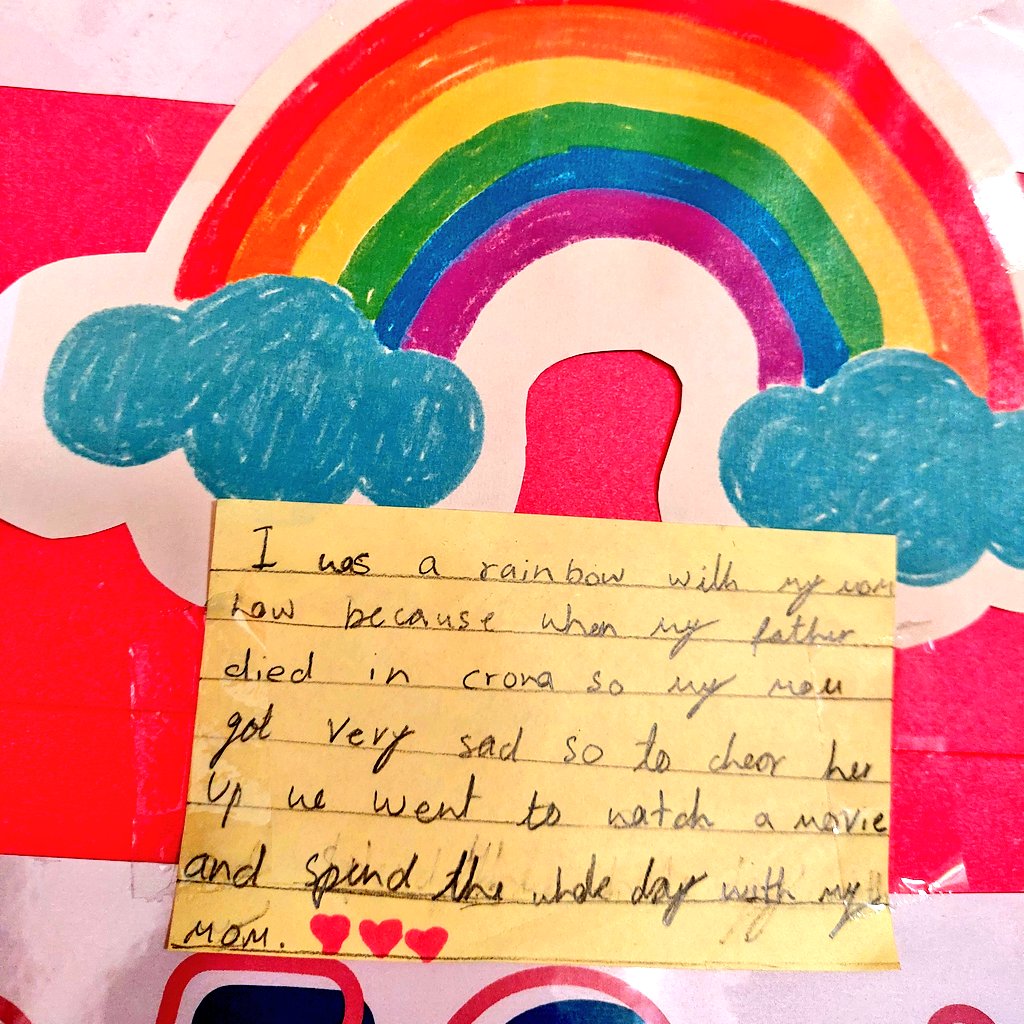 I was a rainbow with my mom
how because when my father
died in crona so my mom
got very sad so to cheor her
Up we went to watch a movie
and spend the whole day with my
mom.